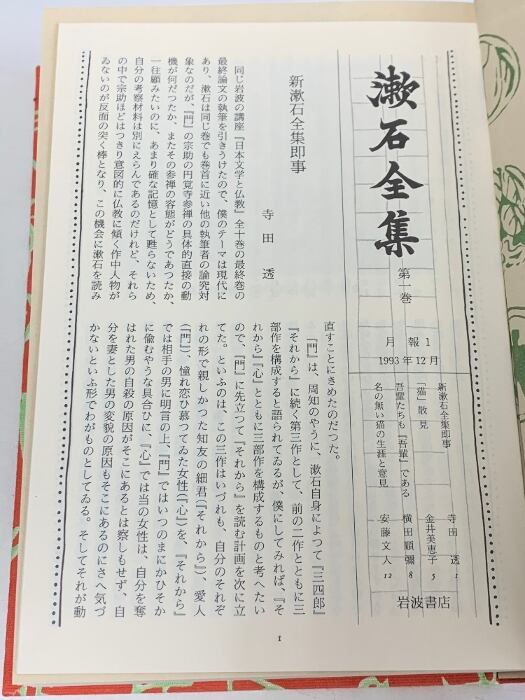 漱石全集
第一巻
月報1
1993年12月
新漱石全集即事 寺田透 1
『猫』散見 金井美恵子 5
吾輩たちも『吾輩』である 横田順彌 8
名の無い猫の生涯と意見 安藤文人 12
岩波書店
新漱石全集即事
寺田透
同じ岩波の講座『日本文学と仏教』全十巻の最終巻の
最終論文の執筆を引きうけたので、僕のテーマは現代に
あり、漱石は同じ巻でも巻首に近い他の執筆者の論究対
象なのだが、『門』の宗助の円覚寺参禅の具体的直接の動
機が何だつたか、またその参禅の容態がどうであつたか、
一往顧みたいのに、あまり確な記憶として甦らないため、
自分の考察材料は別にえらんであるのだけれど、それら
の中で宗助ほどはつきり意図的に仏教に傾く作中人物が
ゐないのが反面の突く棒となり、この機会に漱石を読み
直すことにきめたのだつた。
『門』は、周知のやうに、漱石自身によつて『三四郎』
『それから』に続く第三作として、前の二作とともに三
部作を構成すると語られてゐるが、僕にしてみれば、『そ
れから』『心』とともに三部作を構成するものと考へたい
ので、『門』に先立つて『それから』を読む計画を次に立
てた。といふのは、この三作はいづれも、自分のそれぞ
れの形で親しかつた知友の細君(『それから』)、愛人
(『門』)、憧れ恋ひ慕つてゐた女性(『心』)を、『それから』
では相手の男に明言の上、『門』ではいつのまにかひそか
に偸むやうな具合ひに、『心』では当の女性は、自分を奪
はれた男の自殺の原因がそこにあるとは察しもせず、自
分を妻とした男の変貌の原因もそこにあるのにさへ気づ
かないといふ形でわがものとしてゐる。そしてそれが動
1